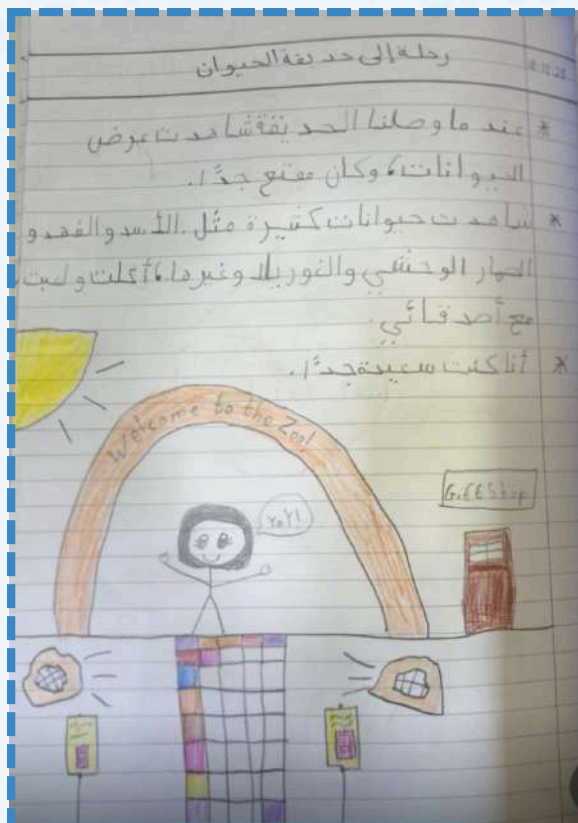 رحلة إلى حديقة الحيوان
* عند ما وصلنا الحديقة شاهدت عرض
الحيوانات، وكان ممتع جدًا.
* شاهدت حيوانات كثيرة مثل. الأسد والفهد و
الحمار الوحشي والغوريلا وغيرها، أكلت ولعبت
مع أصدقائي.
* أنا كنت سعيدة جدًا.
Welcome to the Zoo!
Gift Shop
YaY!